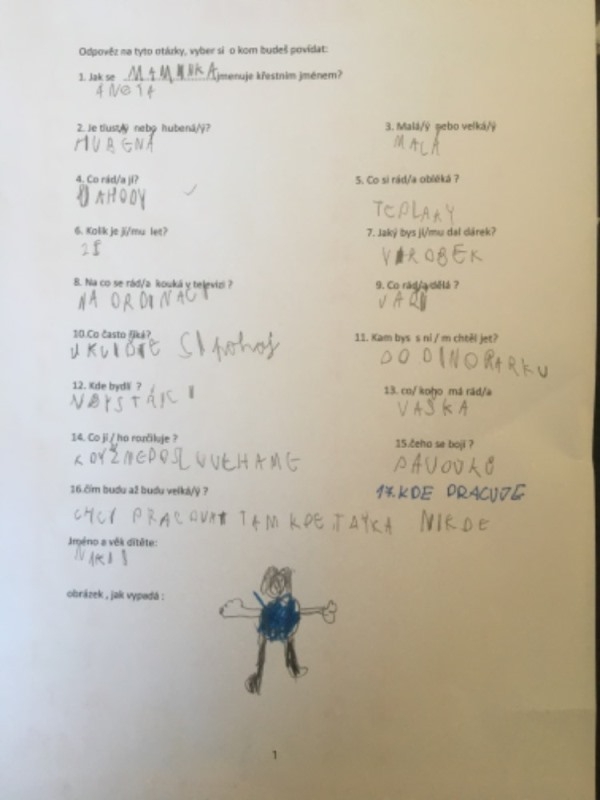 Odpověz na tyto otázky, vyber si o kom budeš povídat:
1. Jak se MAMINKA jmenuje křestním jménem?
ANETA
2. Je tlustý/á nebo hubená/ý?
HUBENÁ
3. Malá/ý nebo velká/ý
MALÁ
4. Co rád/a jí?
JAHODY
5. Co si rád/a obléká ?
TEPLÁKY
6. Kolik je jí/mu let?
28
7. Jaký bys jí/mu dal dárek?
VÝROBEK
8. Na co se rád/a kouká v televizi ?
NA ORDINACI
9. Co rád/a dělá ?
VAŘÍ
10.Co často říká?
UKLIĎTE SI pohoj
11. Kam bys s ní / m chtěl jet?
DO DINOPARKU
12. Kde bydlí ?
13. co/ koho má rád/a
VAŠKA
14. Co jí / ho rozčiluje ?
KDYŽ NEPOSLOUCHÁME
15.čeho se bojí ?
PAVOUKŮ
16.čím budu až budu velká/ý ?
17. KDE PRACUJE
CHCI PRACOVAT TAM KDE TAŤKA NIKDE
Jméno a věk dítěte:
obrázek , jak vypadá :
1